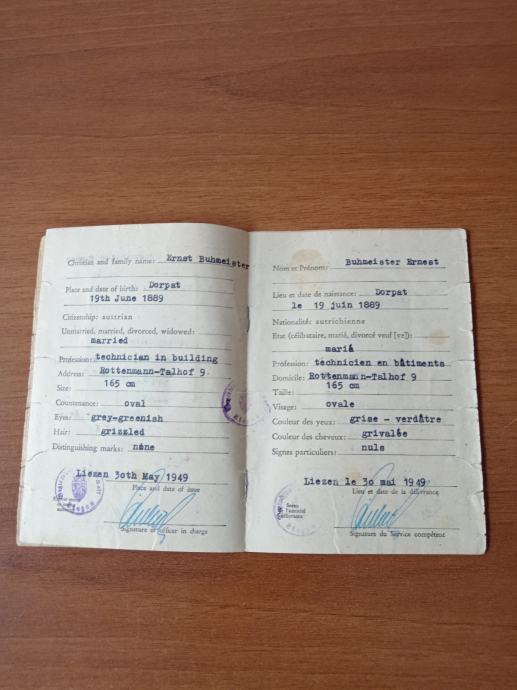 Christian and family name: Ernst Buhmeister
Place and date of birth: Dorpat
19th June 1889
Citizenship: austrian
Unmarried, married, divorced, widowed:
married
Profession: technician in building
Address: Rottenmann-Talhof 9.
Size: 165 cm
Countenance: oval
Eyes: grey-greenish
Hair: grizzled
Distinguishing marks: none
Liezen 30th May 1949
Place and date of issue
Signature of officer in charge
Nom et Prénom: Buhmeister Ernest
Lieu et date de naissance: Dorpat
le 19 juin 1889
Nationalité: autrichienne
Etat (célibataire, marié, divorcé veuf [ve]):
marié
Profession: technicien en bâtiments
Domicile: Rottenmann-Talhof 9
Taille: 165 cm
Visage: ovale
Couleur des yeux: grise - verdâtre
Couleur des cheveux: grivalée
Signes particuliers: nuls
Liezen le 30 mai 1949
Lieu et date de la délivrance
Signature du Service compétent